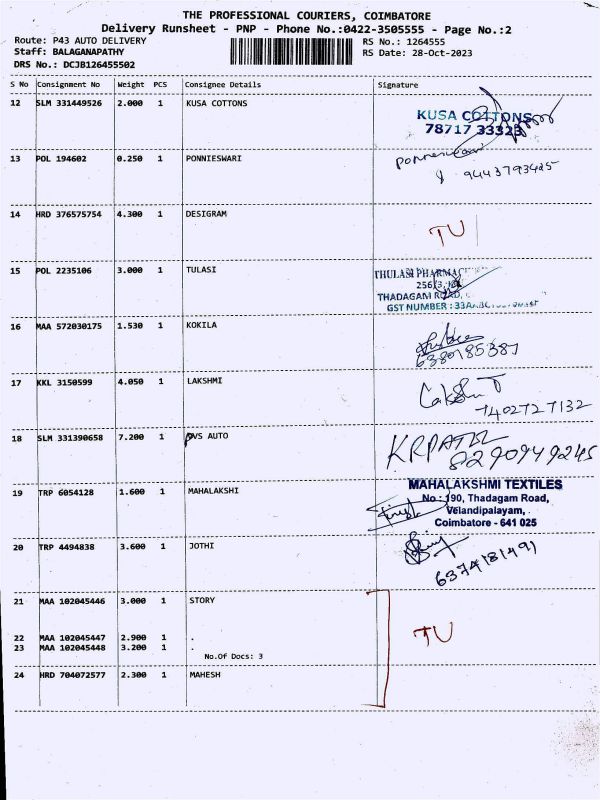 THE PROFESSIONAL COURIERS, COIMBATORE
Delivery Runsheet - PNP - Phone No.:0422-3505555 - Page No.:2
Route: P43 AUTO DELIVERY RS No.: 1264555
Staff: BALAGANAPATHY RS Date: 28-Oct-2023
DRS No.: DCJB126455502
S No Consignment No Weight PCS Consignee Details Signature
12 SLM 331449526 2.000 1 KUSA COTTONS
KUSA COTTONS
78717 33323
13 POL 194602 0.250 1 PONNIESWARI
9443793425
14 HRD 376575754 4.300 1 DESIGRAM
TU
15 POL 2235106 3.000 1 TULASI
THULASI PHARMACY
THADAGAM ROAD,
GST NUMBER :
16 MAA 572030175 1.530 1 KOKILA
6380185387
17 KKL 3150599 4.050 1 LAKSHMI
7402727132
18 SLM 331390658 7.200 1 PVS AUTO
KRPATEL
8290949245
19 TRP 6054128 1.600 1 MAHALAKSHI
MAHALAKSHMI TEXTILES
No : 190, Thadagam Road,
Velandipalayam,
Coimbatore - 641 025
20 TRP 4494838 3.600 1 JOTHI
6374181491
21 MAA 102045446 3.000 1 STORY
22 MAA 102045447 2.900 1 .
23 MAA 102045448 3.200 1 .
No.Of Docs: 3
TU
24 HRD 704072577 2.300 1 MAHESH